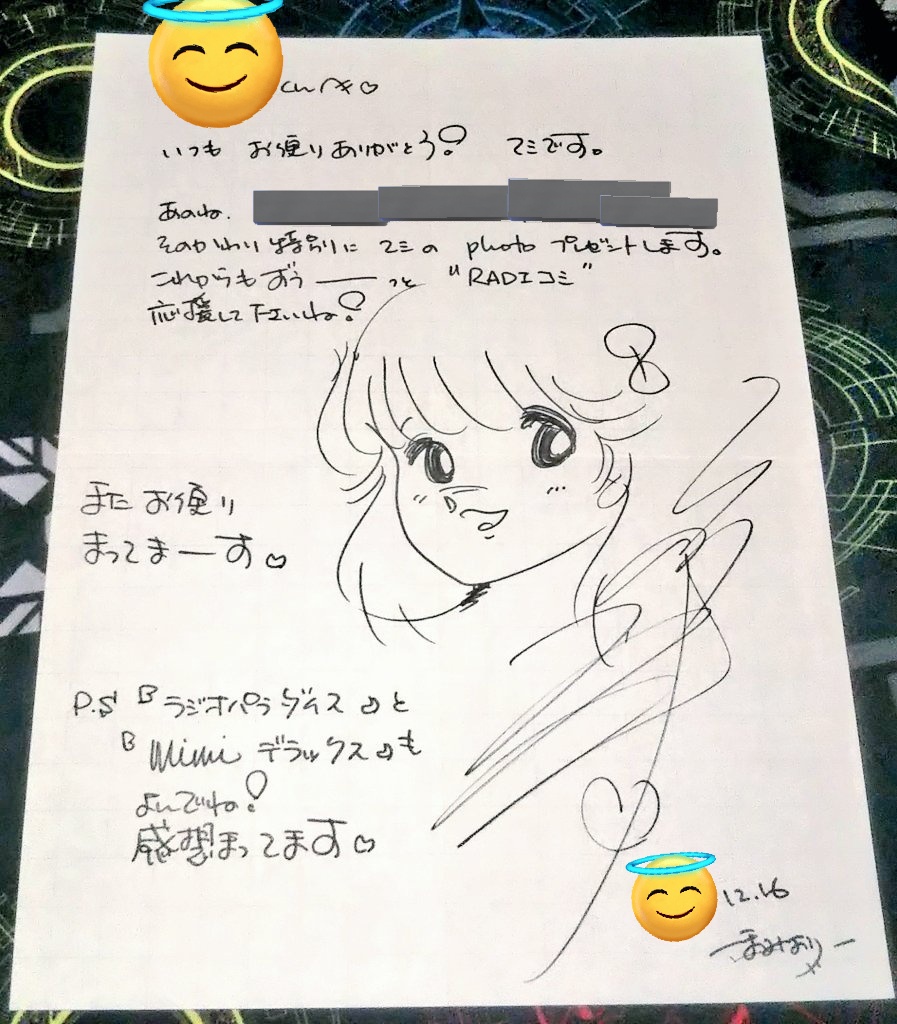 くんへ♡
いつも お便りありがとう! マミです。
あのね、
そのかわり特別に マミの photo プレゼントします。
これからもずうーっと "RADIコミ"
応援して下さいね!
また お便り
まってまーす♡
P.S 『ラジオパラダイス』と
『Mimi デラックス』も
よんでね!
感想まってます♡
12.16
まみより